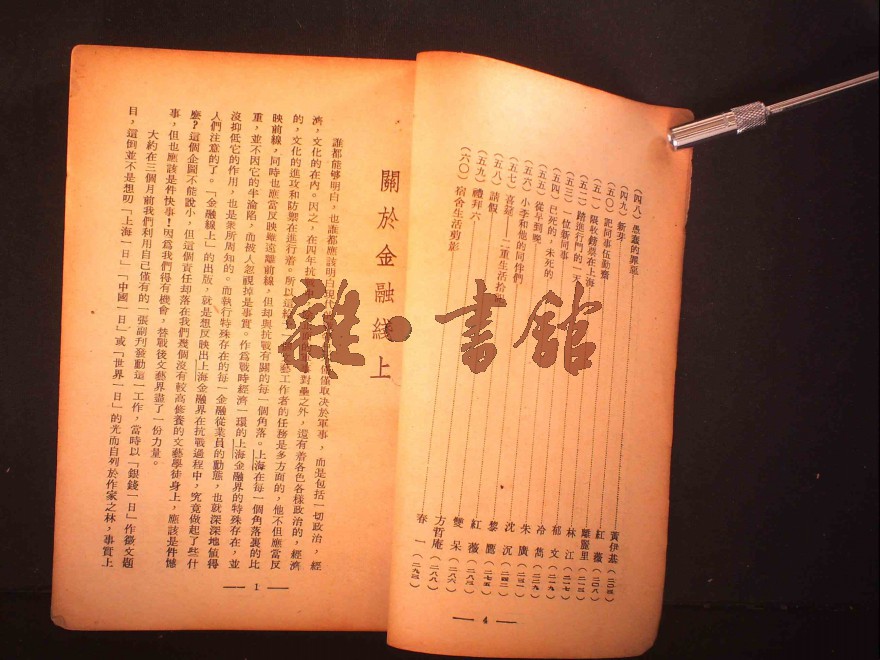 (四八)愚蠢的罪惡 黃伊基(二〇四)
(四九)新芽 紅薇(二〇八)
(五〇)記同事伍勤齋 離麗里(二一三)
(五一)限收鎊票在上海 林江(二一七)
(五二)踏進行門的一天 郁文(二一九)
(五三)一位新同事
(五四)已死的,未死的 冷萬
(五五)從早到晚 朱廣
(五六)小李和他的同伴們 沈沉
(五七)喜筵——二重生活拾 黎鷹(二七五)
(五八)請假 紅薇(二八三)
(五九)禮拜六 雙呆(二八六)
(六〇)宿舍生活剪影 方哲庵(二八八)
春一(二九三)
— 4 —
關於金融綫上
誰都能够明白,也誰都應該明白現代 僅取决於軍事,而是包括一切政治,經
濟,文化的在內。因之,在四年抗戰 事對壘之外,還有着各色各樣政治的,經濟
的,文化的進攻和防禦在進行着。所以這 藝工作者的任務是多方面的,他不但應當反
映前線,同時也應當反映雖遠離前線,但却與抗戰有關的每一個角落。上海在每一個角落裏的比
重,並不因它的半淪陷,而被人忽視掉是事實。作爲戰時經濟一環的上海金融界的特殊存在,並
沒抑低它的作用,也是衆所周知的。而執行特殊存在的每一金融從業員的動態,也就深深地値得
人們注意的了。「金融線上」的出版,就是想映出上海金融界在抗戰過程中,究竟做起了些什
麽?這個企圖不能說小,但這個責任却落在我們幾個沒有較高修養的文藝學徒身上,應該是件憾
事,但也應該是件快事!因爲我們得有機會,替戰後文藝界盡了一份力量。
大約在三個月前我們利用自己僅有的一張副刊發動這一工作,當時以「銀錢一日」作徵文題
目,這倒並不是想叨「上海一日」「中國一日」或「世界一日」的光而自列於作家之林,事實上
— 1 —
雜·書館